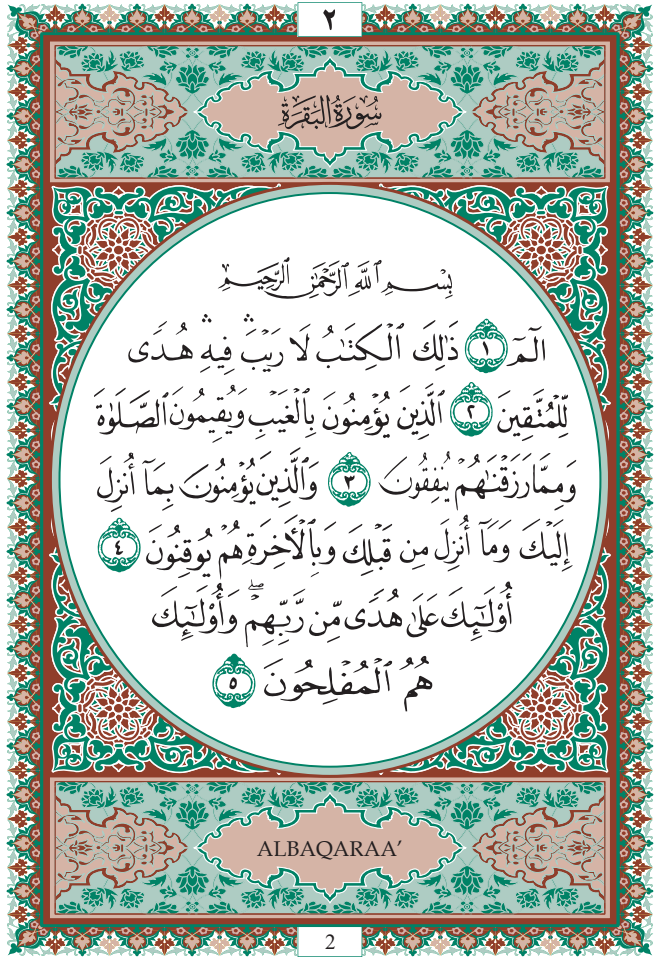 ٢
سُورَةُ البَقَرَةِ
بِسْمِ ٱللَّهِ ٱلرَّحْمَٰنِ ٱلرَّحِيمِ
الٓمٓ ١ ذَٰلِكَ ٱلْكِتَٰبُ لَا رَيْبَ ۛ فِيهِ ۛ هُدًى
لِّلْمُتَّقِينَ ٢ ٱلَّذِينَ يُؤْمِنُونَ بِٱلْغَيْبِ وَيُقِيمُونَ ٱلصَّلَوٰةَ
وَمِمَّا رَزَقْنَٰهُمْ يُنفِقُونَ ٣ وَٱلَّذِينَ يُؤْمِنُونَ بِمَآ أُنزِلَ
إِلَيْكَ وَمَآ أُنزِلَ مِن قَبْلِكَ وَبِٱلْأَخِرَةِ هُمْ يُوقِنُونَ ٤
أُو۟لَٰٓئِكَ عَلَىٰ هُدًى مِّن رَّبِّهِمْ ۖ وَأُو۟لَٰٓئِكَ
هُمُ ٱلْمُفْلِحُونَ ٥
ALBAQARAA’
2